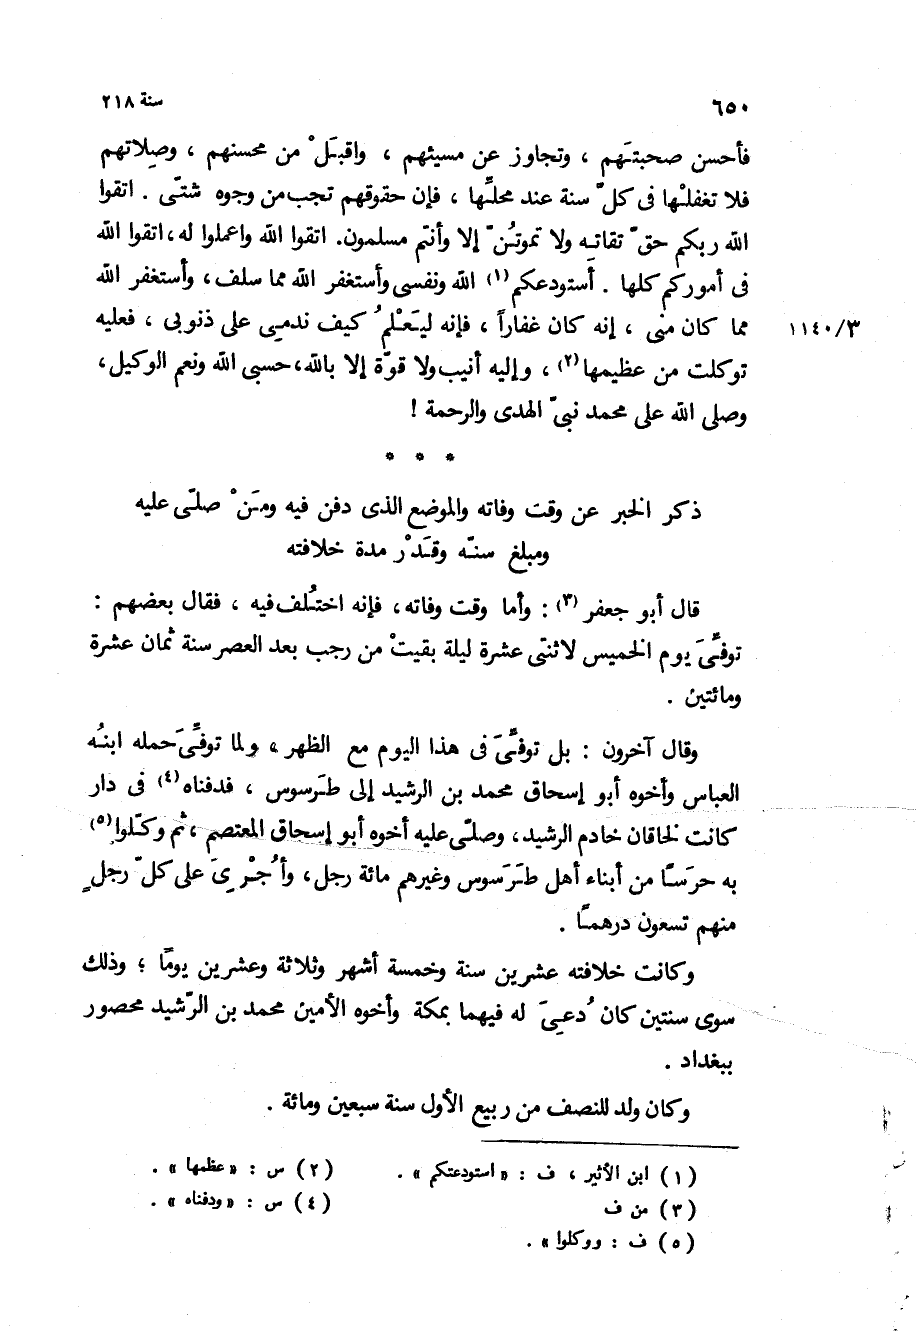 ٦٥٠ سنة ٢١٨
فأحسن صحبتَهم ، وتجاوز عن مسيئهم ، واقبَلْ من محسنهم ، وصِلاتهم
فلا تغفلْها فى كلّ سنة عند محلِّها ، فإن حقوقهم تجب من وجوه شتّى . اتقوا
الله ربكم حقّ تقاتِه ولا تموتُنّ إلا وأنتم مسلمون. اتقوا الله واعملوا له، اتقوا الله
فى أموركم كلها . أستودعكم (١) الله ونفسى وأستغفر الله مما سلف، وأستغفر الله
مما كان منى ، إنه كان غفاراً ، فإنه ليَعْلمُ كيف ندمِى على ذنوبى ، فعليه ١١٤٠/٣
توكلت من عظيمها (٢) ، وإليه أنيب ولا قوّة إلا بالله، حسبى الله ونعم الوكيل،
وصلى الله على محمد نبىّ الهدى والرحمة !
* * *
ذكر الخبر عن وقت وفاته والموضع الذى دفن فيه ومَنْ صلّى عليه
ومبلغ سنّه وقَدْر مدة خلافته
قال أبو جعفر (٣) : وأما وقت وفاته، فإنه اختُلف فيه ، فقال بعضهم :
توفِّىَ يوم الخميس لاثنتى عشرة ليلة بقيتْ من رجب بعد العصر سنة ثمان عشرة
ومائتين .
وقال آخرون : بل توفِّىَ فى هذا اليوم مع الظهر، ولما توفِّىَ حمله ابنُه
العباس وأخوه أبو إسحاق محمد بن الرشيد إلى طَرسوس ، فدفناه (٤) فى دار
كانت لخاقان خادم الرشيد، وصلّى عليه أخوه أبو إسحاق المعتصم ، ثم وكّلوا (٥)
به حرَسًا من أبناء أهل طَرَسوس وغيرهم مائة رجل، وأُجْرِىَ على كلّ رجلٍ
منهم تسعون درهمًا .
وكانت خلافته عشرين سنة وخمسة أشهر وثلاثة وعشرين يومًا ؛ وذلك
سوى سنتين كان دُعِىَ له فيهما بمكة وأخوه الأمين محمد بن الرّشيد محصور
ببغداد .
وكان ولد للنصف من ربيع الأول سنة سبعين ومائة .
(١) ابن الأثير ، ف : « استودعتكم » . (٢) س : « عظمها » .
(٣) من ف (٤) س : « ودفناه » .
(٥) ف : ووكلوا » .